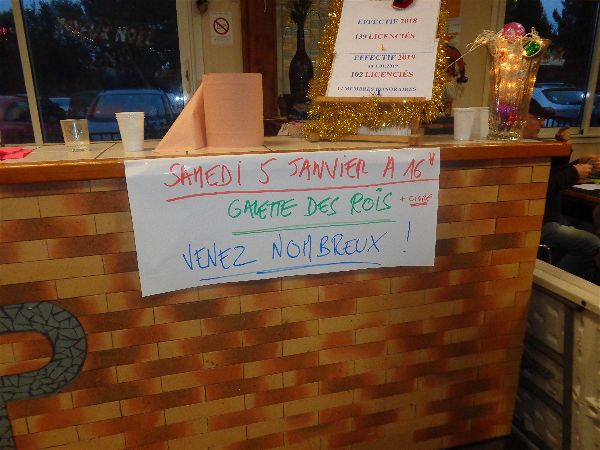 EFFECTIF 2018
139 LICENCIÉS
EFFECTIF 2019
au 1.01.2019
102 LICENCIÉS
12 MEMBRES HONORAIRES
SAMEDI 5 JANVIER A 16 H
GALETTE DES ROÏS + CIDRE
VENEZ NOMBREUX !